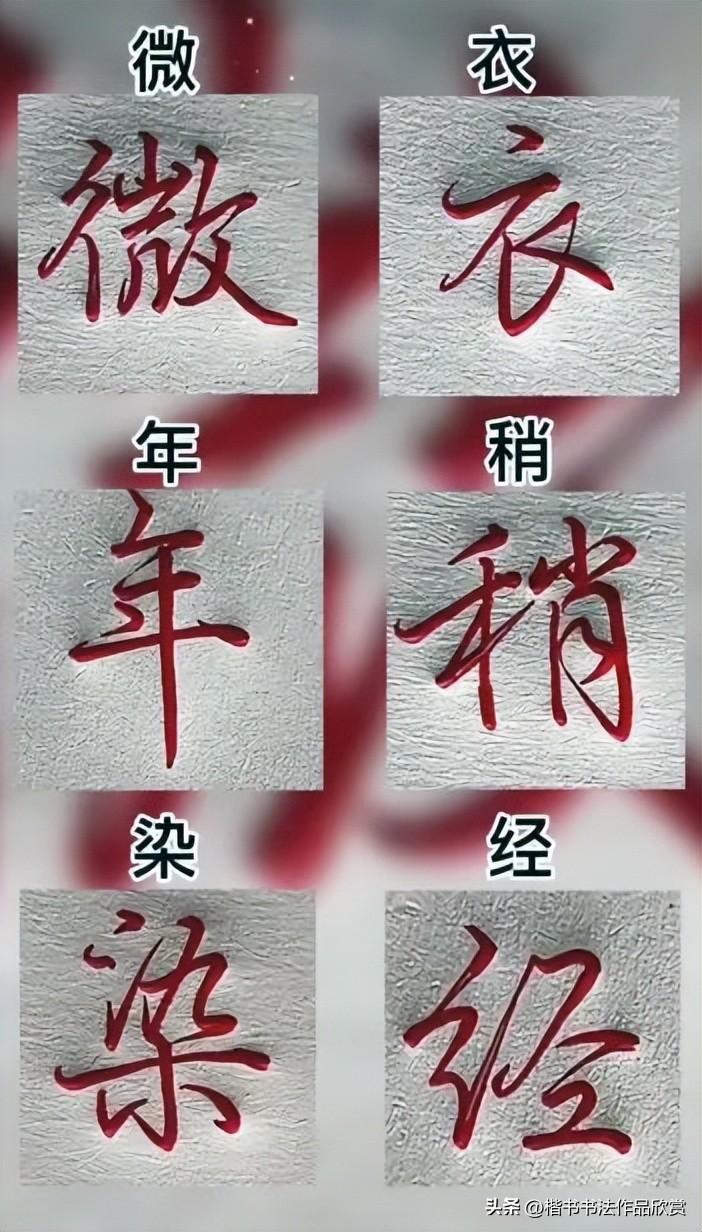 微 衣
微 衣
年 稍
年 稍
染 经
染 经
头条 @楷书书法作品欣赏